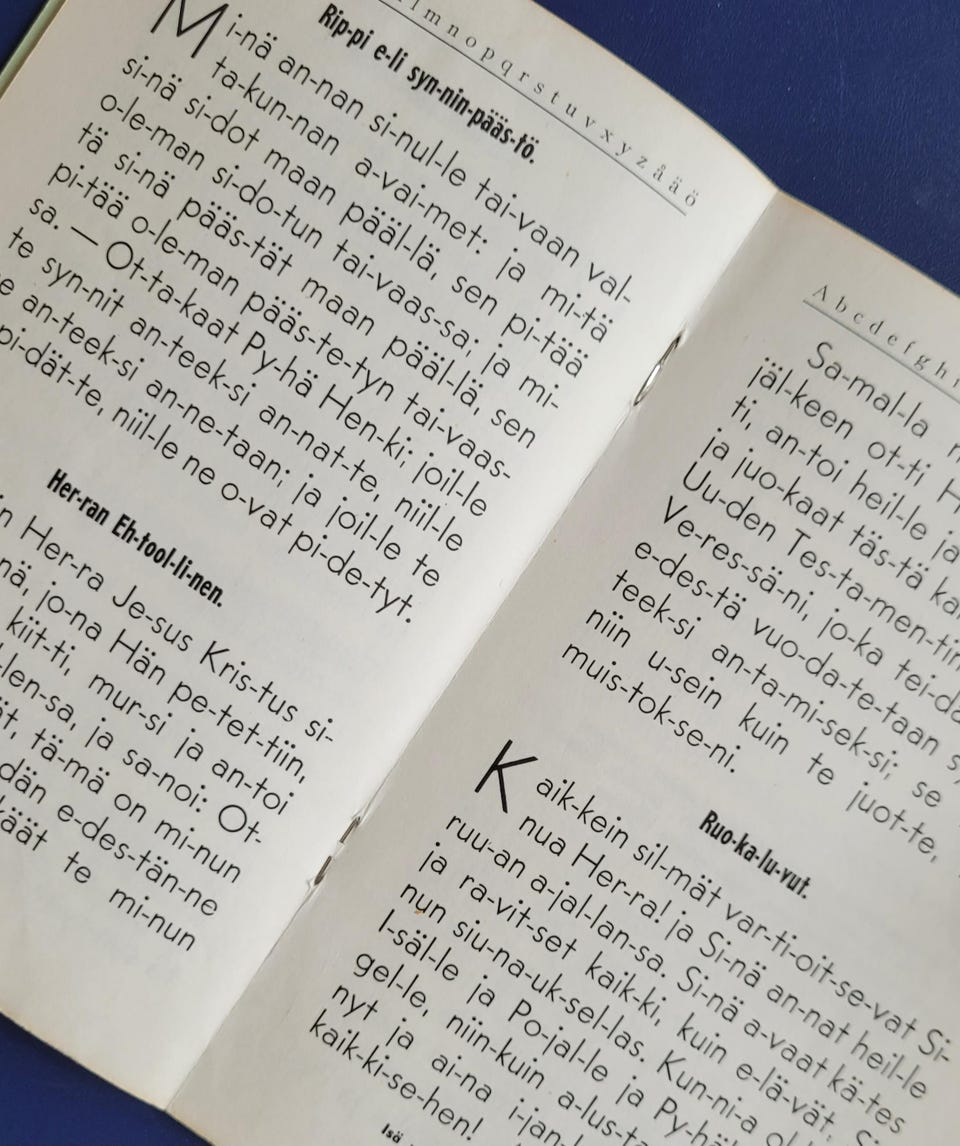 l m n o p q r s t u v x y z å ä ö
Rip-pi e-li syn-nin-pääs-tö.
Mi-nä an-nan si-nul-le tai-vaan val-
ta-kun-nan a-vai-met: ja mi-tä
si-nä si-dot maan pääl-lä, sen pi-tää
o-le-man si-do-tun tai-vaas-sa; ja mi-
tä si-nä pääs-tät maan pääl-lä, sen
pi-tää o-le-man pääs-te-tyn tai-vaas-
sa. — Ot-ta-kaat Py-hä Hen-ki; joil-le
te syn-nit an-teek-si an-nat-te, niil-le
ne an-teek-si an-ne-taan; ja joil-le te
pi-dät-te, niil-le ne o-vat pi-de-tyt.
Her-ran Eh-tool-li-nen.
Her-ra Je-sus Kris-tus si-
nä, jo-na Hän pe-tet-tiin,
kiit-ti, mur-si ja an-toi
len-sa, ja sa-noi: Ot-
tä-mä on mi-nun
dän e-des-tän-ne
te mi-nun
A b c d e f g h i
Sa-mal-la
jäl-keen ot-ti
ti, an-toi heil-le ja
ja juo-kaat täs-tä
Uu-den Tes-ta-men-tin
Ve-res-sä-ni, jo-ka tei-dä
e-des-tä vuo-da-te-taan
teek-si an-ta-mi-sek-si; se
niin u-sein kuin te juot-te,
muis-tok-se-ni.
Ruo-ka-lu-vut.
Kaik-kein sil-mät var-ti-oit-se-vat Si-
nua Her-ra! ja Si-nä an-nat heil-le
ruu-an a-jal-lan-sa. Si-nä a-vaat kä-tes
ja ra-vit-set kaik-ki, kuin e-lä-vät,
nun siu-na-uk-sel-las. Kun-ni-a
I-säl-le ja Po-jal-le ja Py-hä
gel-le, niin-kuin a-lus-ta
nyt ja ai-na i-jan-
kaik-ki-se-hen!
Isä